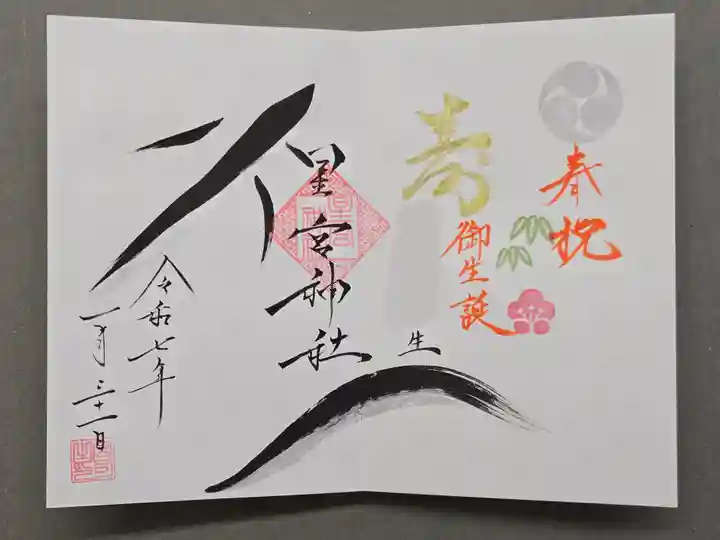 奉祝
寿
御生誕
生
星宮神社
令和七年
一月三十一日